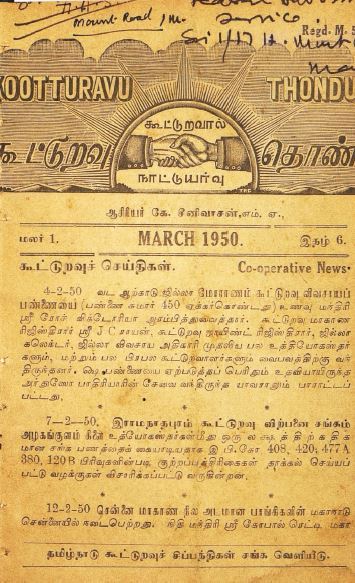 Mount Road, M.
Service
Regd. M.
KOOTTURAVU THONDU
கூட்டுறவால்
கூட்டுறவு தொண்
நாட்டுயர்வு
ஆசிரியர் கே. சீனிவாசன், எம். ஏ.,
மலர் 1. MARCH 1950. இதழ் 6.
கூட்டுறவுச் செய்திகள். Co-operative News.
4-2-50 வட ஆற்காடு ஜில்லா மோராணம் கூட்டுறவு விவசாயப்
பண்ணையை (பண்ணை சுமார் 450 ஏக்கர்கொண்டது) உணவு மந்திரி
ஸ்ரீ ரோச் விக்டோரியா ஆரம்பித்துவைத்தார். கூட்டுறவு மாகாண
ரிஜிஸ்திரார் ஸ்ரீ J C ரயன், கூட்டுறவு ஜாயிண்ட் ரிஜிஸ்திரார், ஜில்லா
கலெக்டர், ஜில்லா விவசாய அதிகாரி முதலிய பல உத்தியோகஸ்தர்
களும், மற்றும் பல பிரபல கூட்டுறவாளர்களும் வைபவத்திற்கு வந்
திருந்தனர். ஷை பண்ணையை ஏற்படுத்தப் பெரிதும் உதவியாயிருந்த
பாதிரியாரின் சேவை வந்திருந்த யாவராலும் பாராட்டப்
பட்டது.
7-2-50. இராமநாதபுரம் கூட்டுறவு விற்பனை சங்கம்
அழகங்குளம் கிளை உத்யோகஸ்தர்கள்மீது ஒரு லக்ஷத்திற்கதிக
மான சங்க பணத்தைக் கையாடியதாக இ. பி. கோ 408, 420, 477A
380, 120B பிரிவுகளின்படி குற்றப்பத்திரிகைகள் தாக்கல் செய்யப்
பட்டு வழக்குகள் விசாரிக்கப்பட்டு வருகின்றன.
12-2-50 சென்னை மாகாண நில அடமான பாங்கிகளின் மகாநாடு
சென்னையில் நடைபெற்றது. நிதி மந்திரி ஸ்ரீ கோபால் ரெட்டி மகா
தமிழ்நாடு கூட்டுறவுச் சிப்பந்திகள் சங்க வெளியீடு.